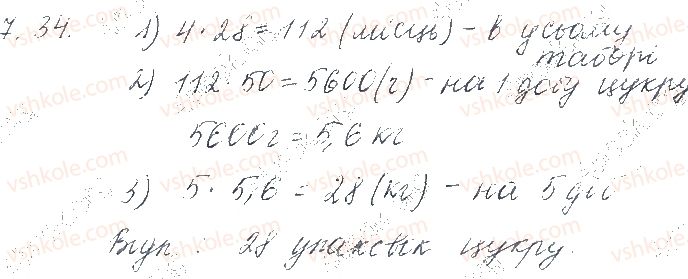 7. 34. 1) 4 · 28 = 112 (місць) - в усьому
таборі
2) 112 · 50 = 5600 (г) - на 1 добу цукру
5600 г = 5,6 кг
3) 5 · 5,6 = 28 (кг) - на 5 діб
28 упаковок цукру.